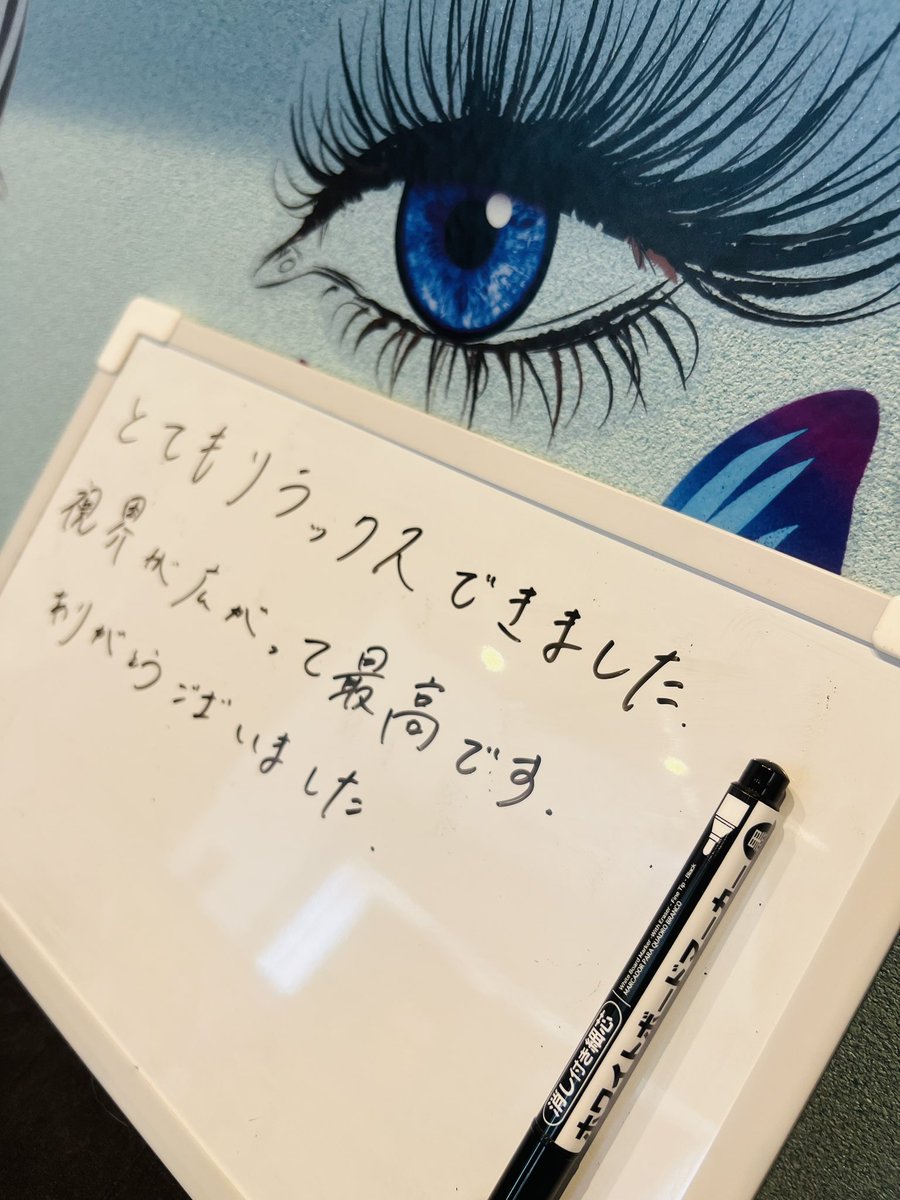 とてもリラックスできました.
視界が広がって最高です.
ありがとうございました.
黒
ホワイトボードマーカー
消し付き細芯
White Board Marker -With Eraser - Fine Tip - Black
MARCADOR PARA QUADRO BRANCO